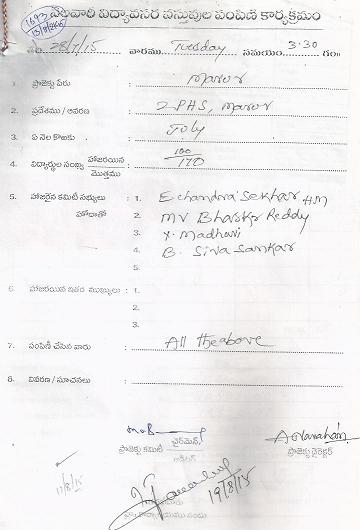 1693
13/8/2015
నెలవారి విద్యావసర వస్తువుల పంపిణి కార్యక్రమం
28/7/15 వారము Tuesday సమయం 3.30 గం॥
1. ప్రాజెక్టు పేరు : Marur
2. ప్రదేశము / ఆవరణ : ZPHS, Marur
3. ఏ నెల కొఱకు : July
4. విద్యార్థుల సంఖ్య హాజరయిన / మొత్తము : 100 / 170
5. హాజరైన కమిటీ సభ్యులు : 1. E chandra Sekhar HM
హోదాతో 2. MV Bhaskar Reddy
3. Y. Madhavi
4. B. Siva Sankar
5.
6. హాజరయిన ఇతర ముఖ్యులు : 1.
2.
3.
7. పంపిణీ చేసిన వారు : All the above
8. వివరణ / సూచనలు :
ప్రాజెక్టు కమిటీ ఛైర్మెన్
ప్రాజెక్టు డైరెక్టర్
11/8/15
19/8/15